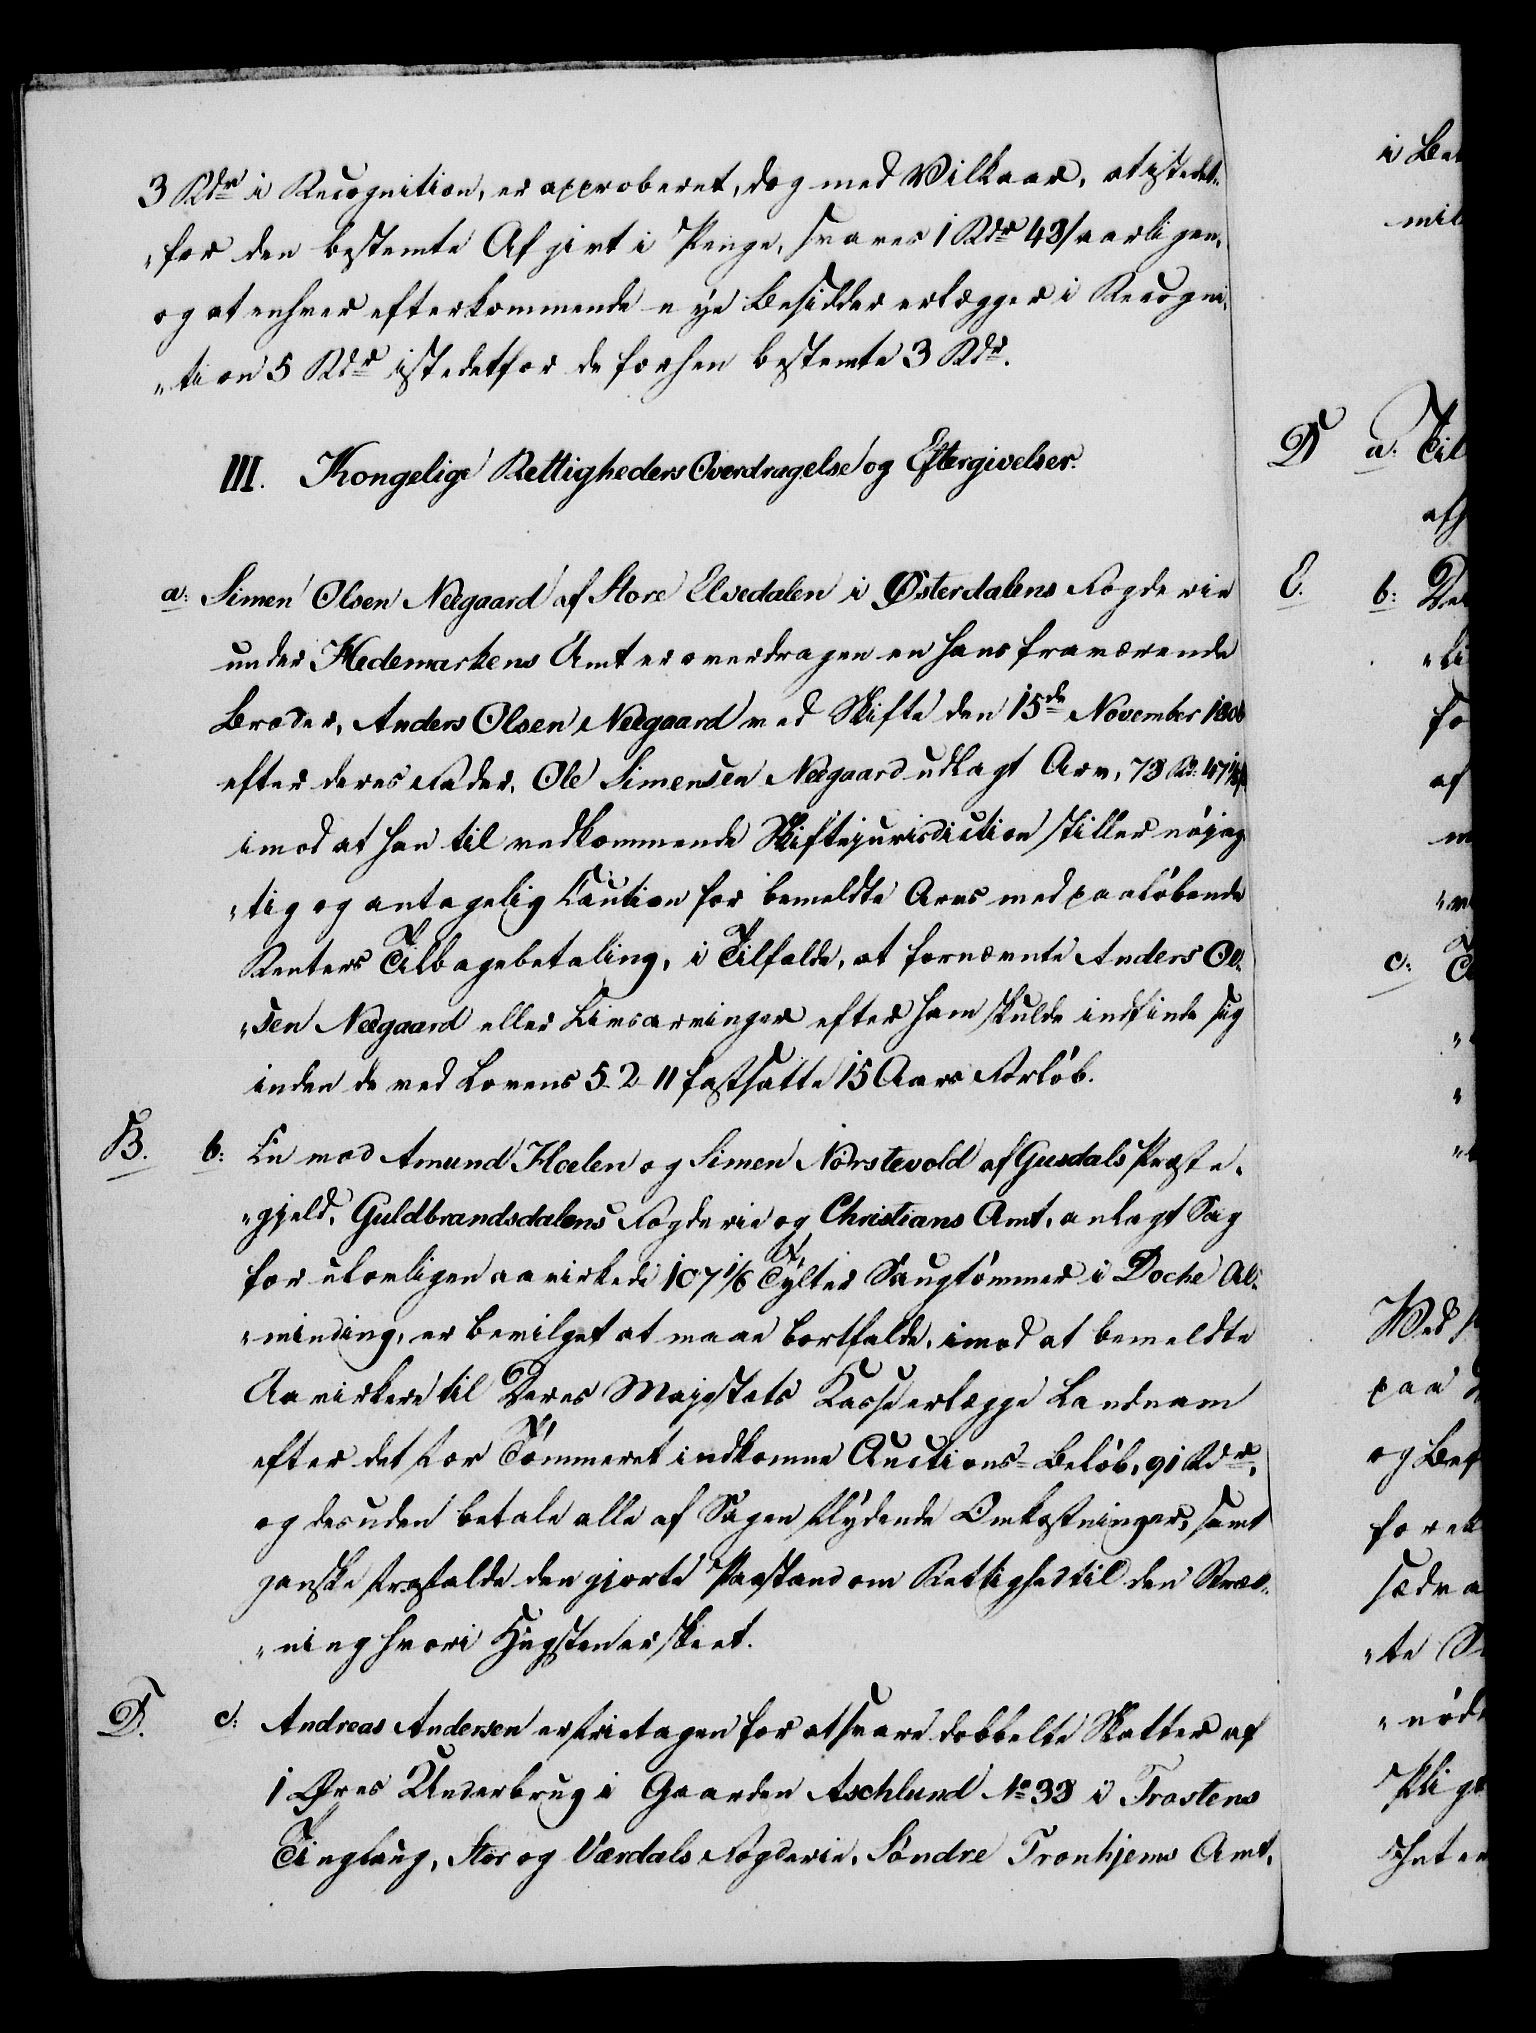 3 Rdr i Recognition, er approberet, dog med Vilkaar, at istedet-
"for den bestemte Afgivt i Penge, svares 1 Rdr 48 s aarligen,
og at enhver efterkommende nye Besidder erlægger i Recogni-
"tion 5 Rdr istedetfor de forhen bestemte 3 Rdr.
III. Kongelige Rettigheders Overdragelse og Eftergivelser.
a: Simen Olsen Neegaard af Store Elvedalen i Østerdalens Fogderie
under Hedemarkens Amt er overdragen en hans fraværende
Broder, Anders Olsen Neegaard ved Skifte den 15de November 1806
efter deres Fader, Ole Simensen Neegaard udlagt Arv, 78 Rd: 47½ s
imod at han til vedkommende Skiftejurisdiction stiller nøjag-
"tig og antagelig Caution for bemeldte Arvs med paaløbende
Renters Tilbagebetaling, i Tilfælde, at fornævnte Anders Ol-
"sen Neegaard eller Livsarvinger efter ham skulde indfinde sig
inden de ved Lovens 5. 2. 11 fastsatte 15 Aars Forløb.
B. b: En mod Amund Hoelen og Simen Nörstevold af Gusdals Præste-
"gjeld, Guldbrandsdalens Fogderie og Christians Amt, anlagt Sag
for ulovligen aavirkede 107 1/6 Tylter Saugtömmer i Docke Al-
"minding, er bevilget at maae bortfalde, imod at bemeldte
Aavirkere til Deres Majestets Kasse erlægge Landnam
efter det for Tömmeret indkomne Auctions-Beløb, 91 Rdr,
og desuden betale alle af Sagen flydende Omkostninger, samt
ganske frafalde den gjorte Paastand om Rettighed til den Stræk-
"ning hvori Hugsten er skeet.
F. c: Andreas Andersen er fritagen for at svare dobbelte Skatter af
1 Øres Underbrug i Gaarden Aschlund No 33 i Frostens
Tinglaug, Stør og Værdals Fogderie, Söndre Tronhjems Amt,
i Be
mil
D a: Til
E. b: De
"li
fo
af
c:
Wed
paa
og Be
forek
sædva
"te
"nöd
Pligt